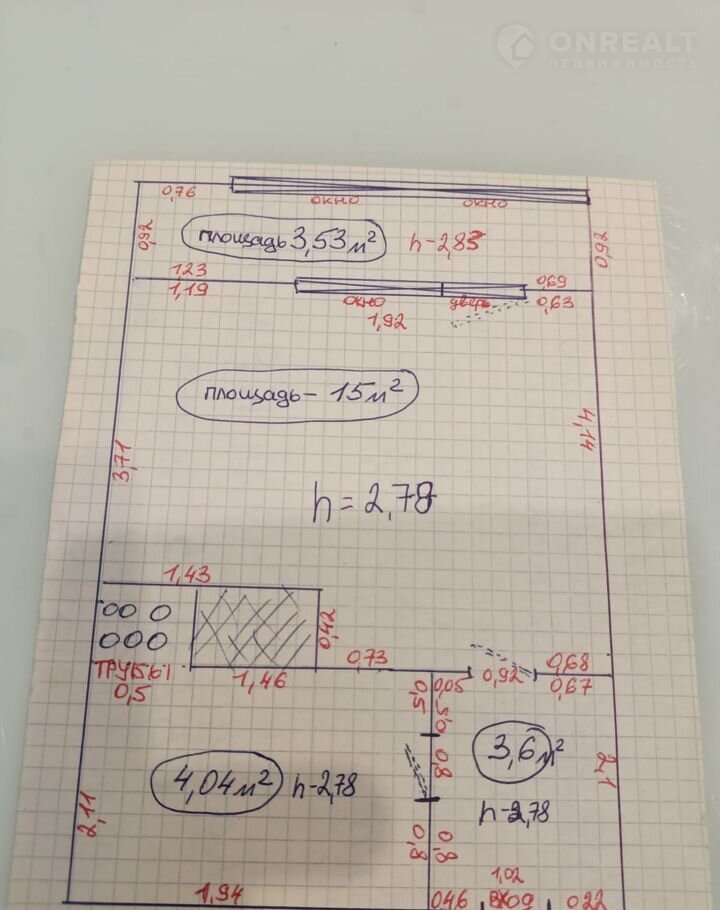 ONREALT
НЕДВИЖИМОСТЬ
0,76
окно
окно
0,92
площадь 3,53 м²
h-2,85
0,92
1,23
0,69
1,19
окно
дверь
0,63
1,92
площадь - 15 м²
4,14
3,71
h = 2,78
1,43
0,42
ТРУБЫ
0,5
1,46
0,73
0,05
0,92
0,68
0,67
0,5
0,5
0,8
3,6 м²
2,1
4,04 м²
h-2,78
h-2,78
2,11
0,8
0,8
1,94
0,46
1,02
ВХОД
0,22